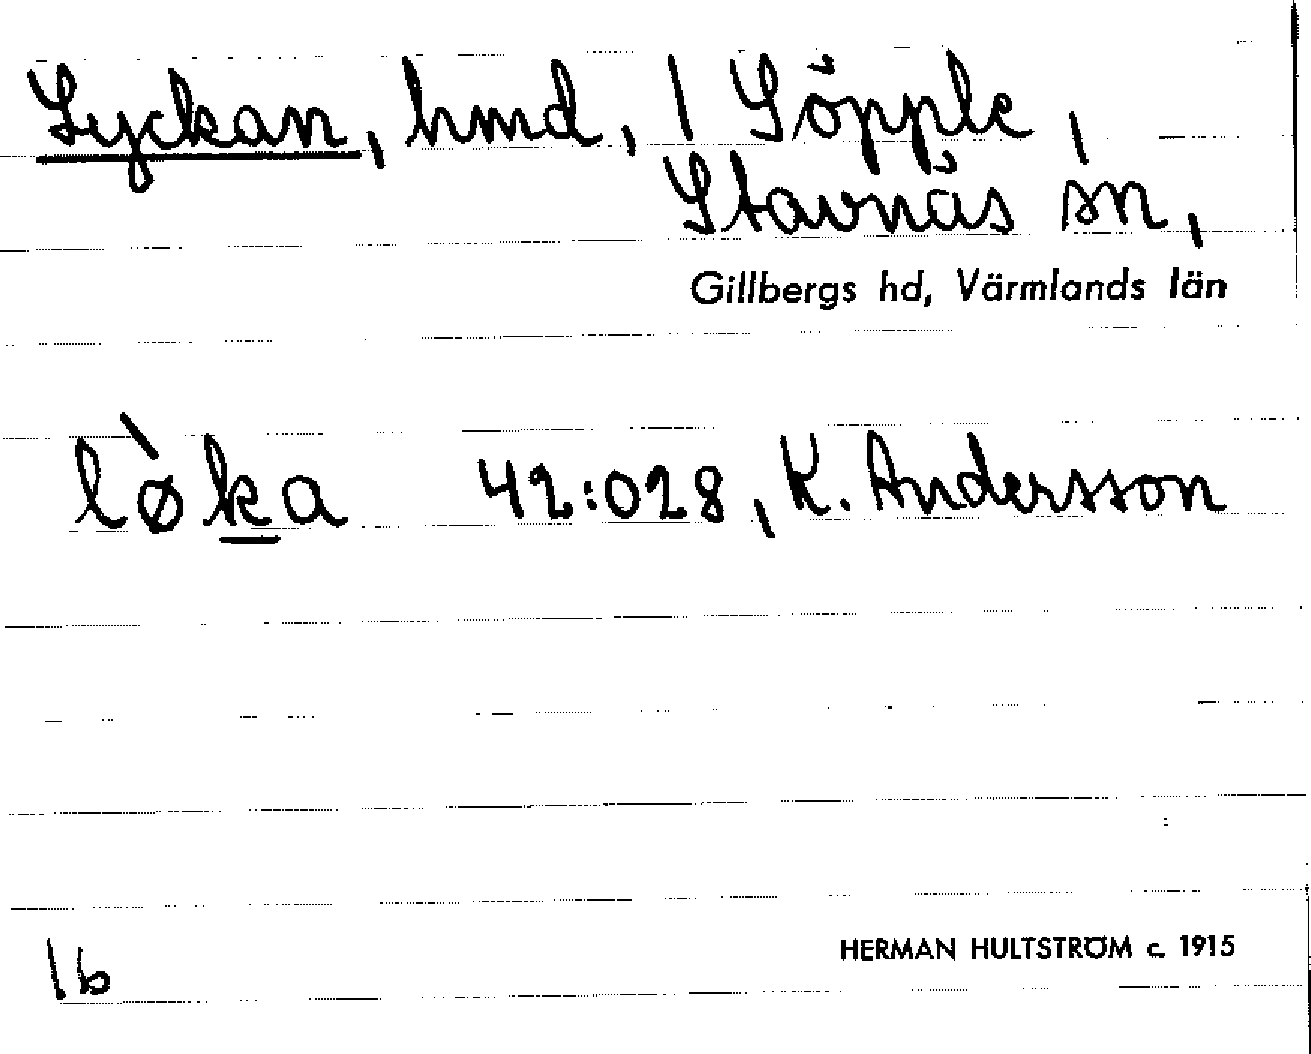 Lyckan, hmd, 1 Söpple,
Stavnäs sn,
Gillbergs hd, Värmlands län
lø̀ka 42:028, K. Andersson
1b
HERMAN HULTSTRÖM c. 1915